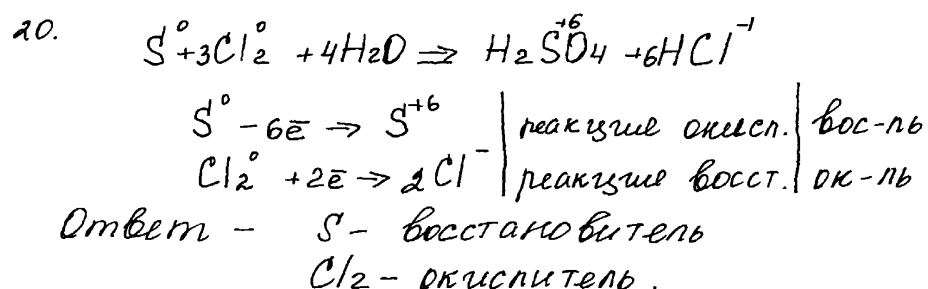 20.
S⁰ + 3Cl₂⁰ + 4H₂O ⇒ H₂S⁺⁶O₄ + 6HCl⁻¹
S⁰ - 6ē → S⁺⁶ | реакция окисл. | вос-ль
Cl₂⁰ + 2ē → 2Cl⁻ | реакция восст. | ок-ль
Ответ - S - восстановитель
Cl₂ - окислитель.